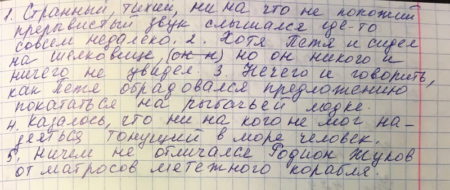 1. Странный, тихий, ни на что не похожий
прерывистый звук слышался где-то
совсем недалеко. 2. Хотя Петя и сидел
на шелковице, (он н) но он никого и
ничего не увидел. 3. Нечего и говорить,
как Петя обрадовался предложению
покататься на рыбачьей лодке.
4. Казалось, что ни на кого не мог на-
деяться тонущий в море человек.
5. Ничем не отличался Родион Жуков
от матросов мятежного корабля.